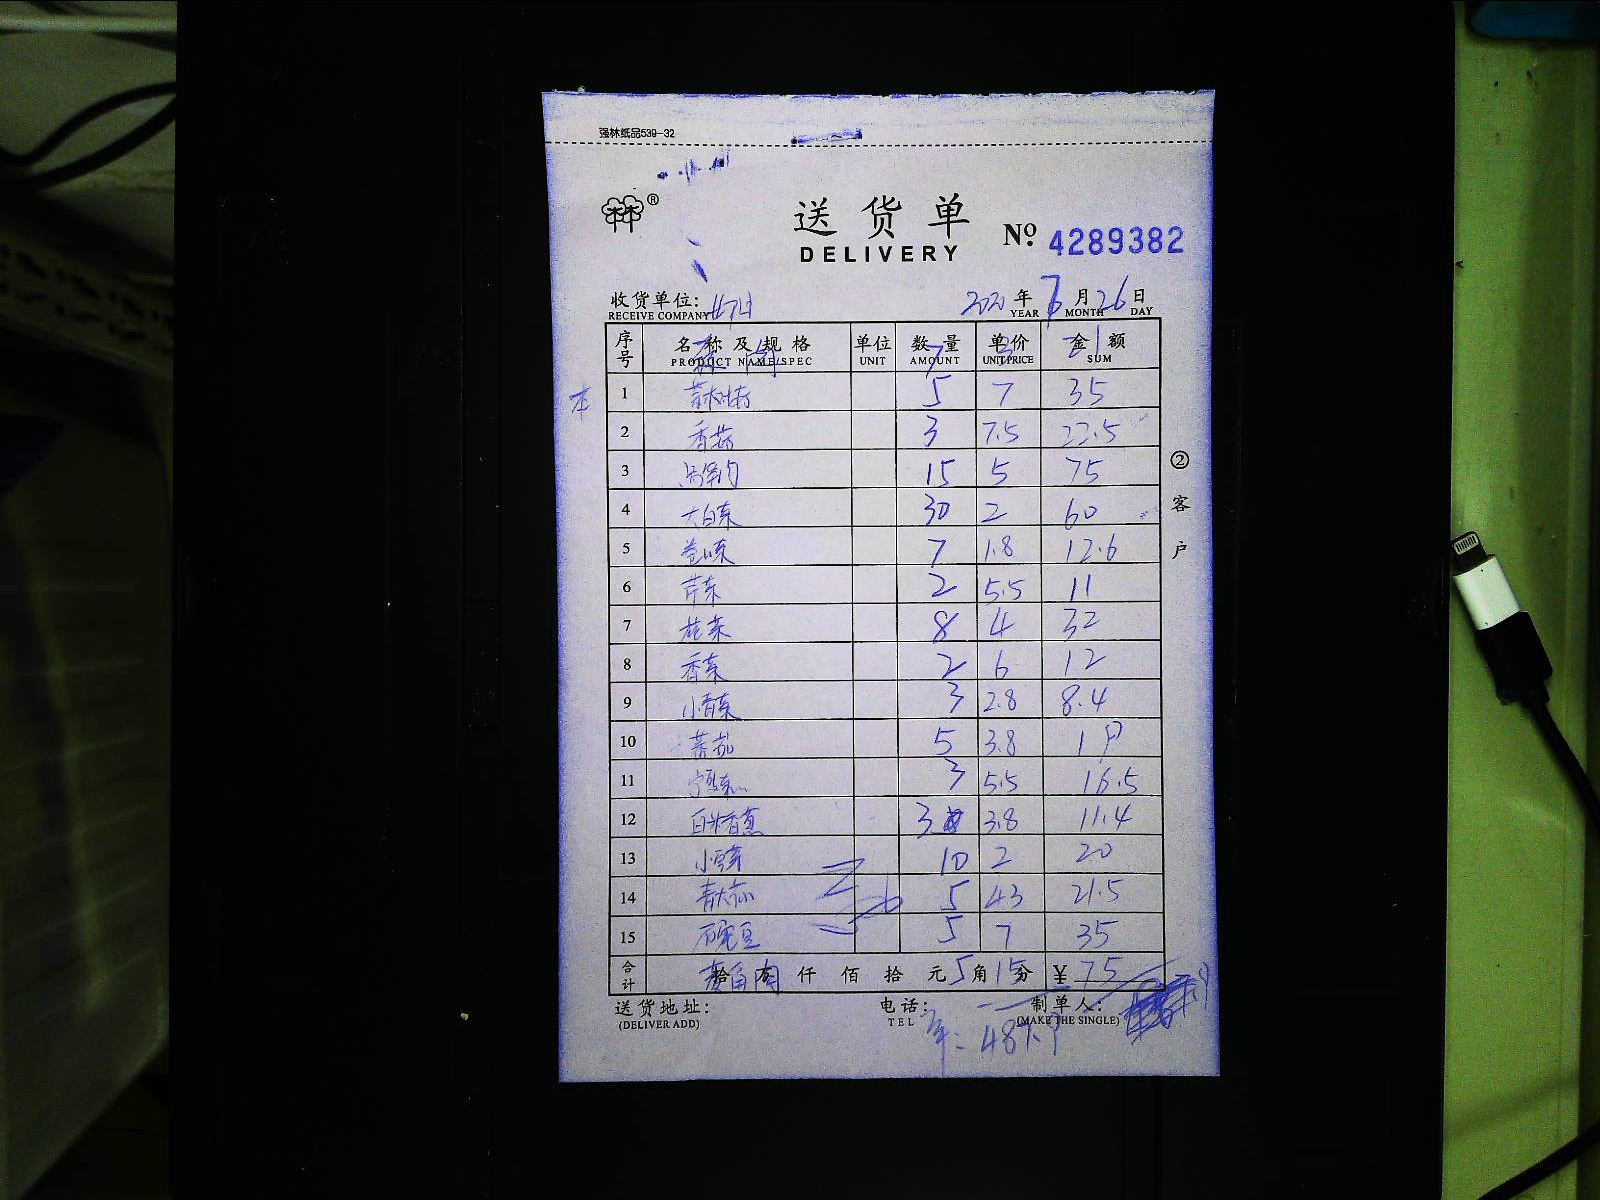 强林纸品539-32
林®
送货单
DELIVERY
No. 4289382
收货单位:
RECEIVE COMPANY
2020 年 月 26 日
YEAR MONTH DAY
序号 名称及规格 单位 数量 单价 金额
PRODUCT NAME/SPEC UNIT AMOUNT UNIT PRICE SUM
本
1 5 7 35
2 香菇 3 7.5 22.5
3 15 5 75
4 大白菜 30 2 60
5 卷心菜 7 1.8 12.6
6 芹菜 2 5.5 11
7 花菜 8 4 32
8 香菜 2 6 12
9 小青菜 3 2.8 8.4
10 蕃茄 5 3.8 19
11 3 5.5 16.5
12 3 3.8 11.4
13 小 10 2 20
14 5 4.3 21.5
15 豌豆 5 7 35
合计 拾 万 仟 佰 拾 元 5 角 15 分 ¥ 75
②客户
送货地址:
(DELIVER ADD)
电话:
TEL
制单人:
(MAKE THE SINGLE)
487.9